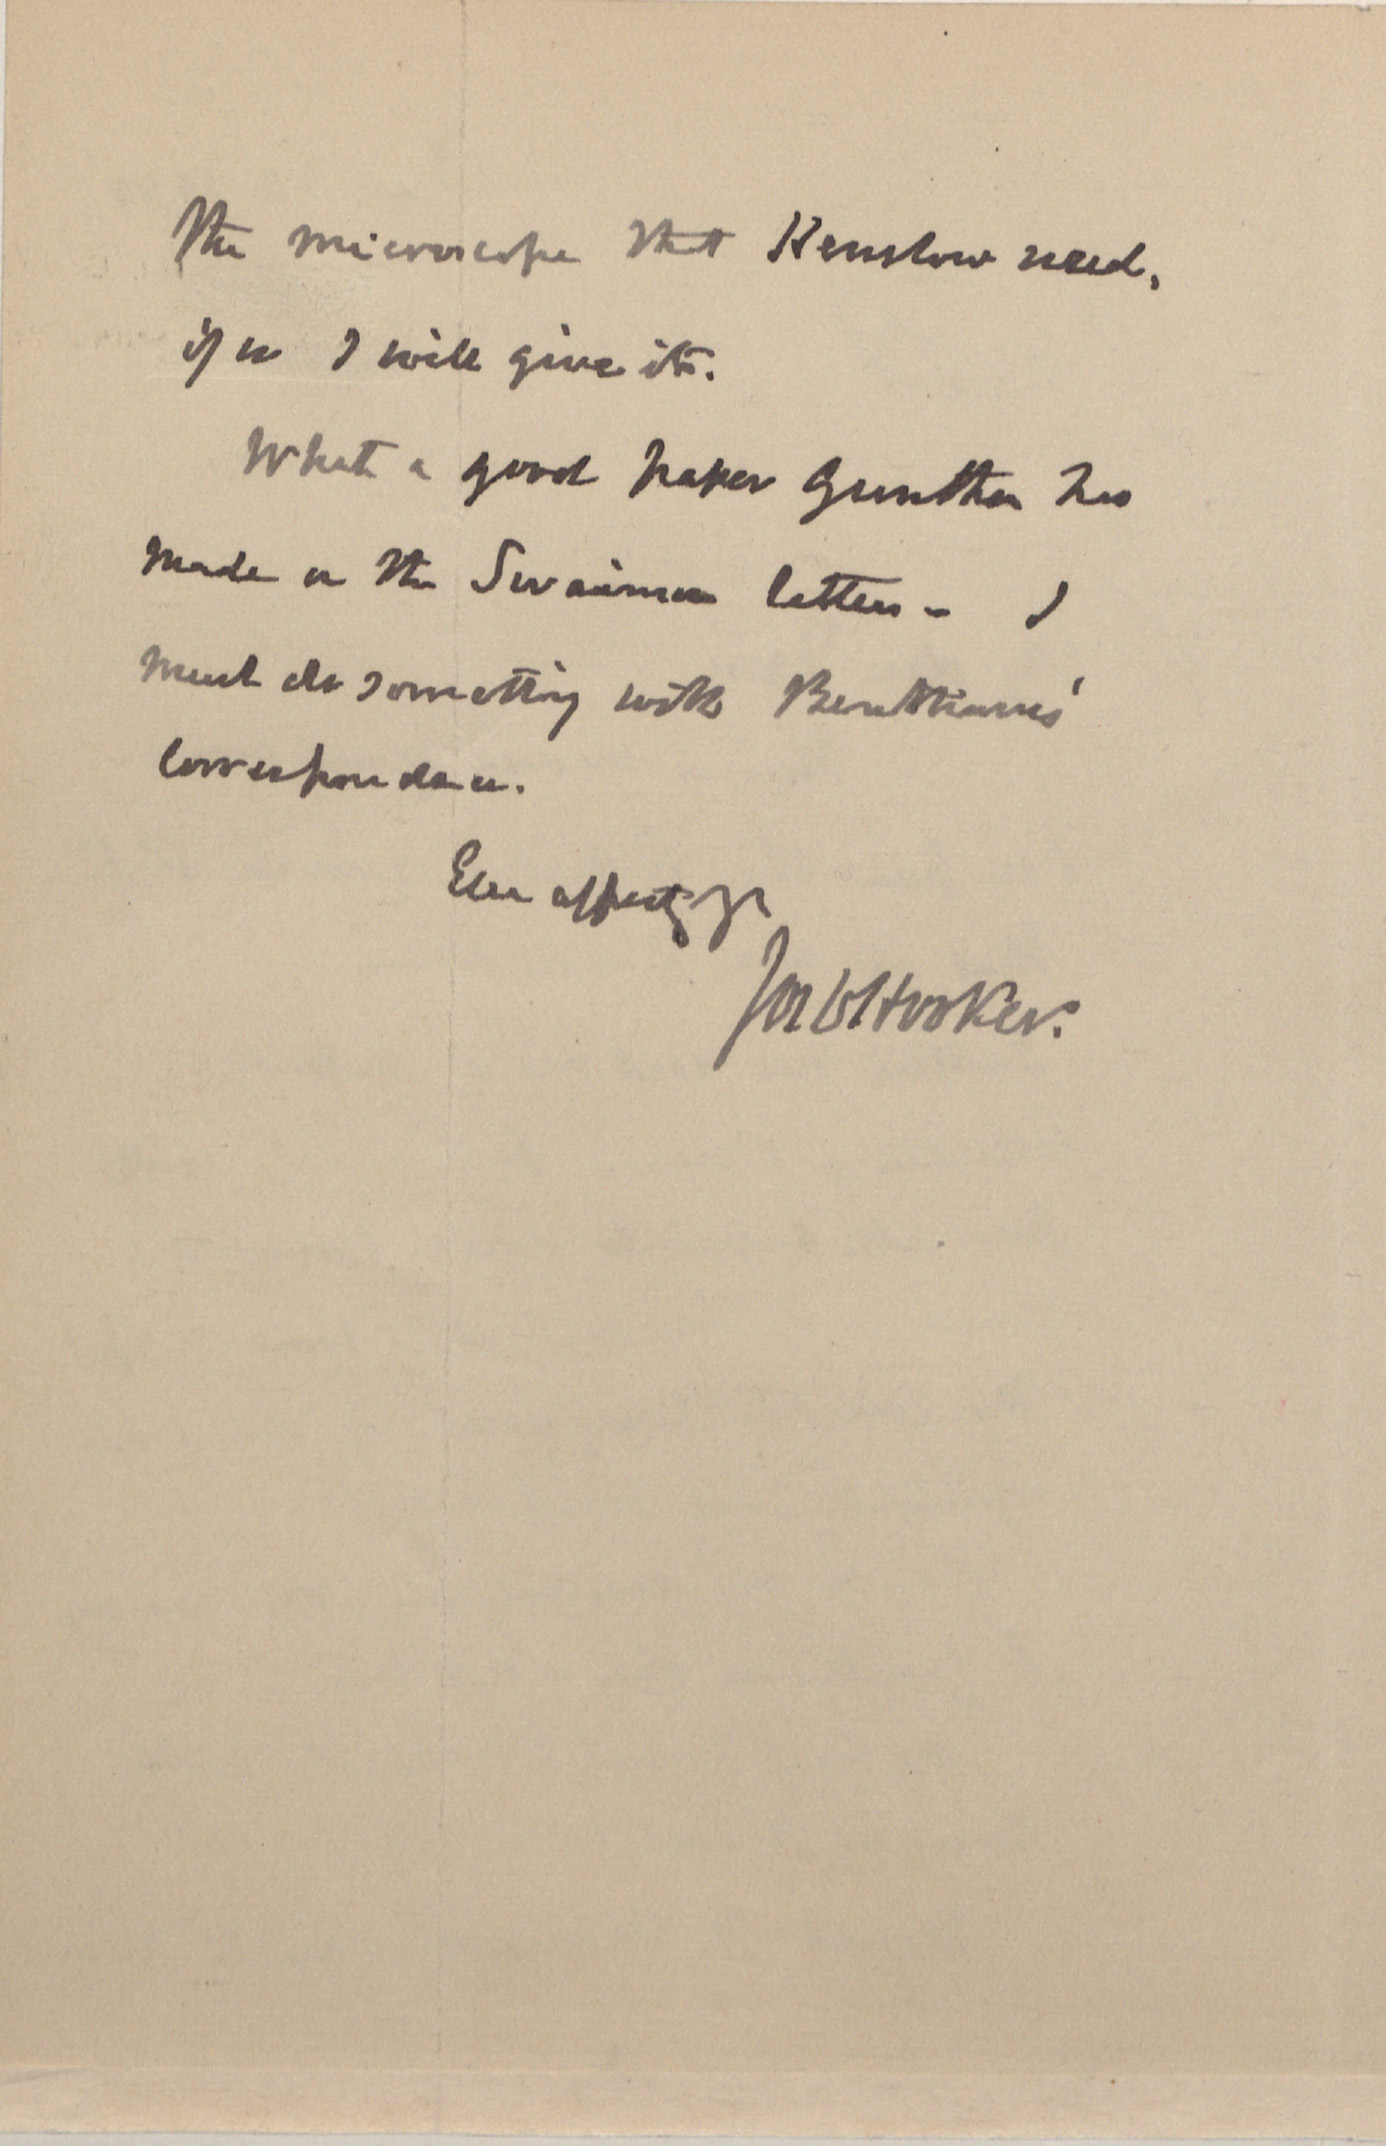 the microscope that Henslow used,
if so I will give it.
What a good paper Gunther has
made on the Swainson letters — I
must do something with Benthams'
correspondence.
Ever affecty yr
Jos D Hooker.